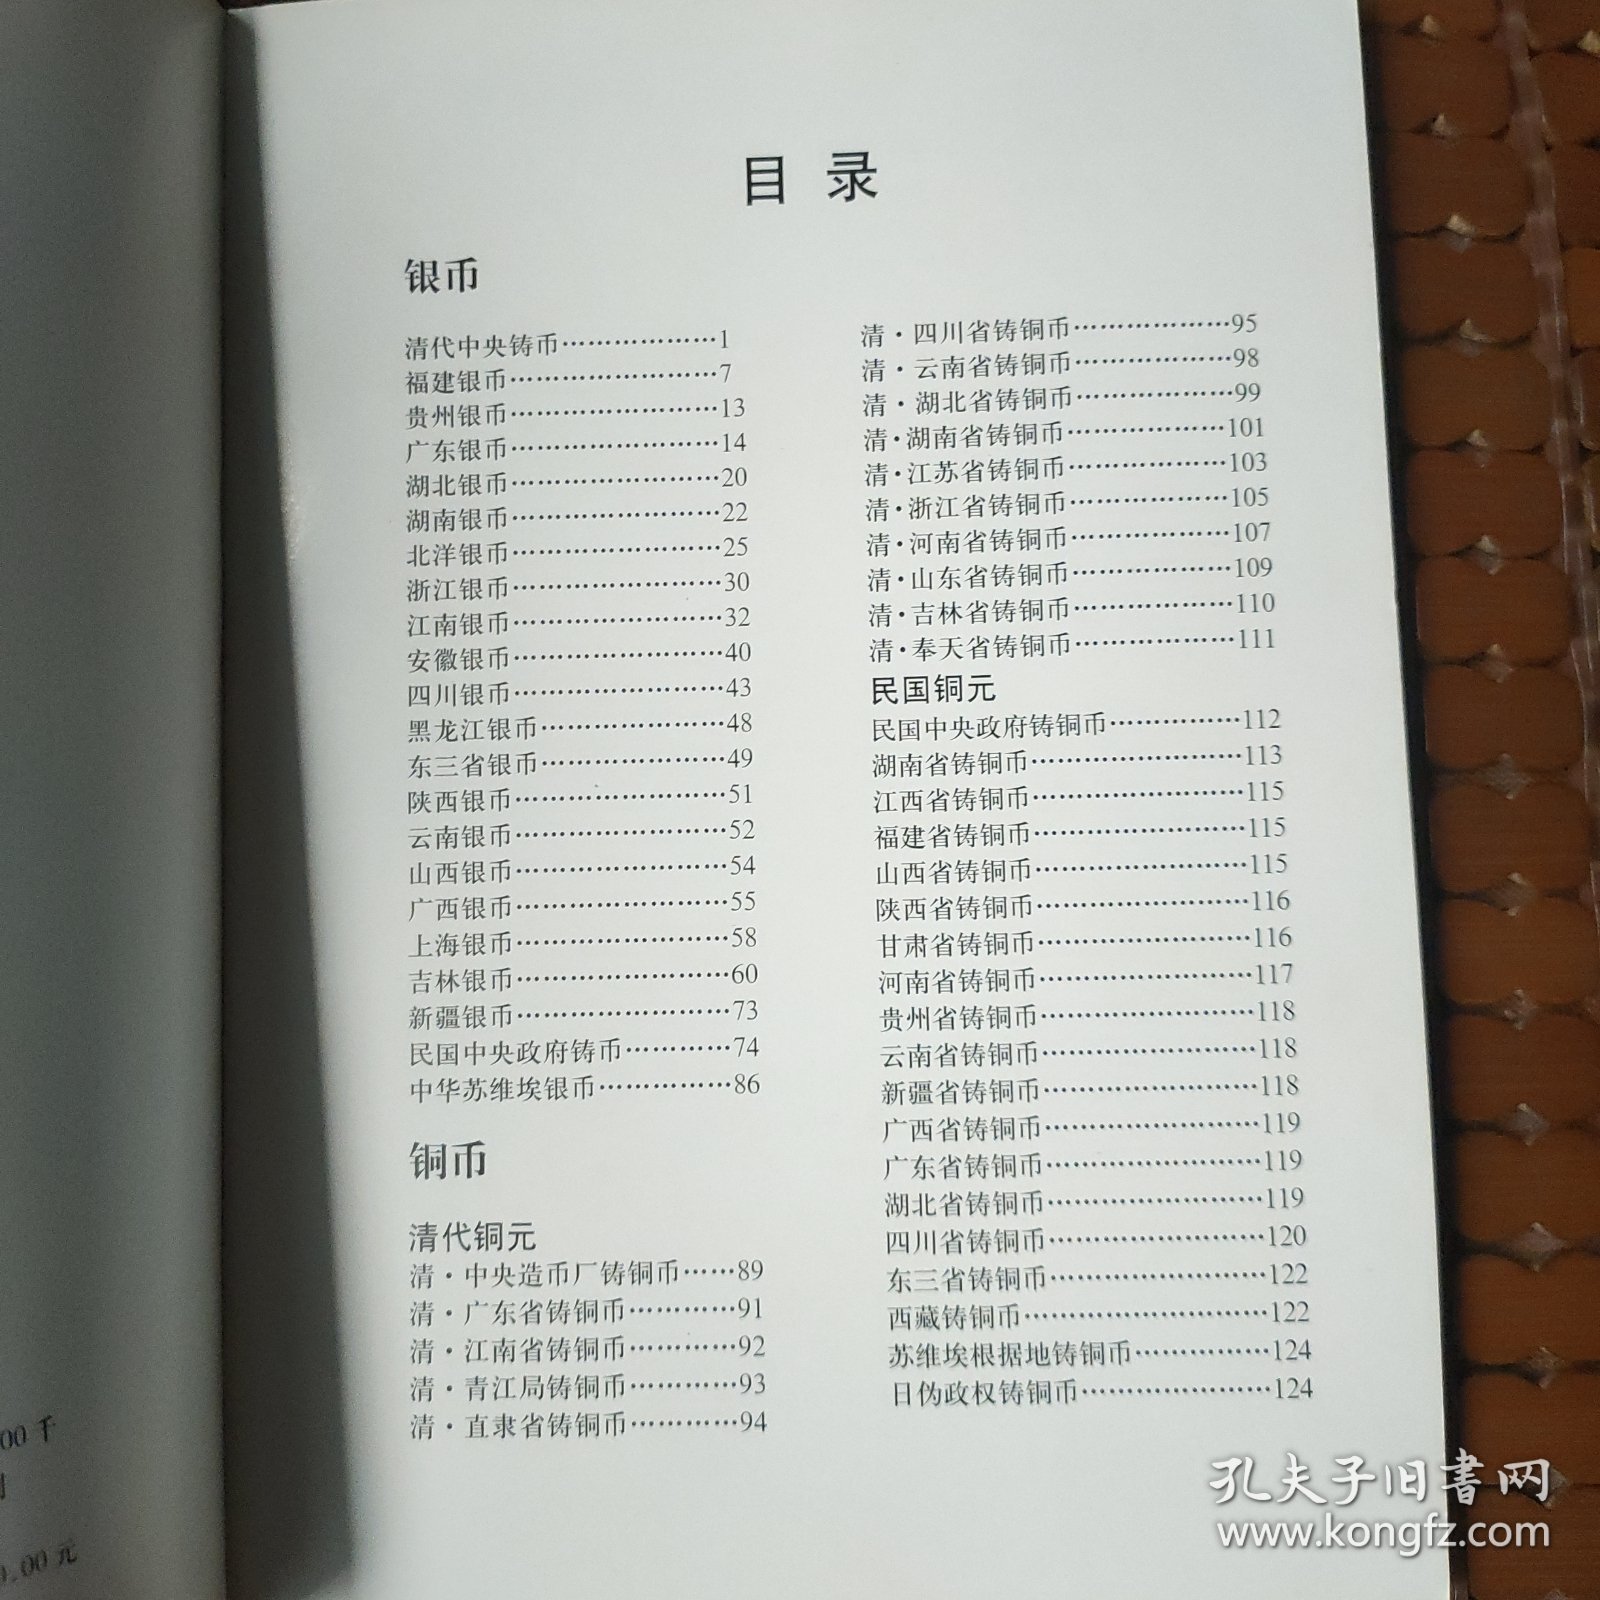 目 录
银币
清代中央铸币………………1
福建银币……………………7
贵州银币……………………13
广东银币……………………14
湖北银币……………………20
湖南银币……………………22
北洋银币……………………25
浙江银币……………………30
江南银币……………………32
安徽银币……………………40
四川银币……………………43
黑龙江银币…………………48
东三省银币…………………49
陕西银币……………………51
云南银币……………………52
山西银币……………………54
广西银币……………………55
上海银币……………………58
吉林银币……………………60
新疆银币……………………73
民国中央政府铸币…………74
中华苏维埃银币……………86
铜币
清代铜元
清·中央造币厂铸铜币……89
清·广东省铸铜币…………91
清·江南省铸铜币…………92
清·青江局铸铜币…………93
清·直隶省铸铜币…………94
清·四川省铸铜币………………95
清·云南省铸铜币………………98
清·湖北省铸铜币………………99
清·湖南省铸铜币………………101
清·江苏省铸铜币………………103
清·浙江省铸铜币………………105
清·河南省铸铜币………………107
清·山东省铸铜币………………109
清·吉林省铸铜币………………110
清·奉天省铸铜币………………111
民国铜元
民国中央政府铸铜币……………112
湖南省铸铜币……………………113
江西省铸铜币……………………115
福建省铸铜币……………………115
山西省铸铜币……………………115
陕西省铸铜币……………………116
甘肃省铸铜币……………………116
河南省铸铜币……………………117
贵州省铸铜币……………………118
云南省铸铜币……………………118
新疆省铸铜币……………………118
广西省铸铜币……………………119
广东省铸铜币……………………119
湖北省铸铜币……………………119
四川省铸铜币……………………120
东三省铸铜币……………………122
西藏铸铜币………………………122
苏维埃根据地铸铜币……………124
日伪政权铸铜币…………………124
00千
.00元
孔夫子旧书网
www.kongfz.com